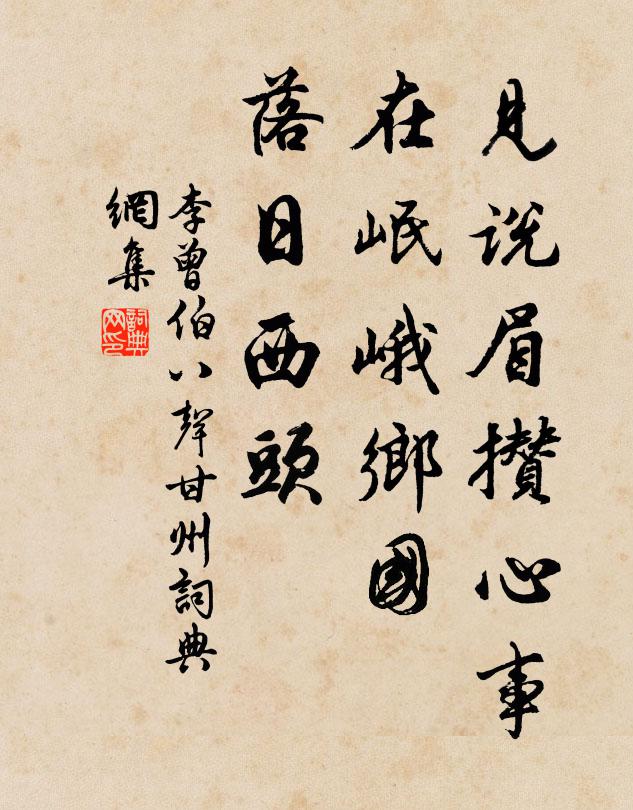 見説眉攢心事
在岷峨鄉國
落日西頭
李曾伯八聲甘州詞典
網集
詞典網印